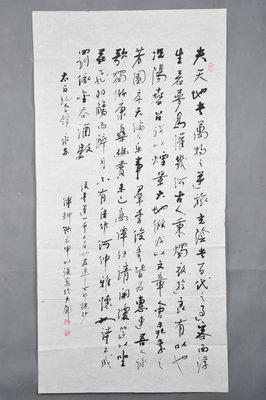 夫天地者萬物之逆旅光陰者百代之過客而浮
生若夢為歡幾何古人秉燭夜遊良有以也
況陽春召我以煙景大塊假我以文章會桃李之
芳園序天倫樂事群季俊秀皆為惠連吾人詠
歌獨慚康樂幽賞未已高談轉清開瓊筵以坐
花飛羽觴而醉月不有佳作何伸雅懷如詩不成
罰依金谷酒數
太白紀念館永存